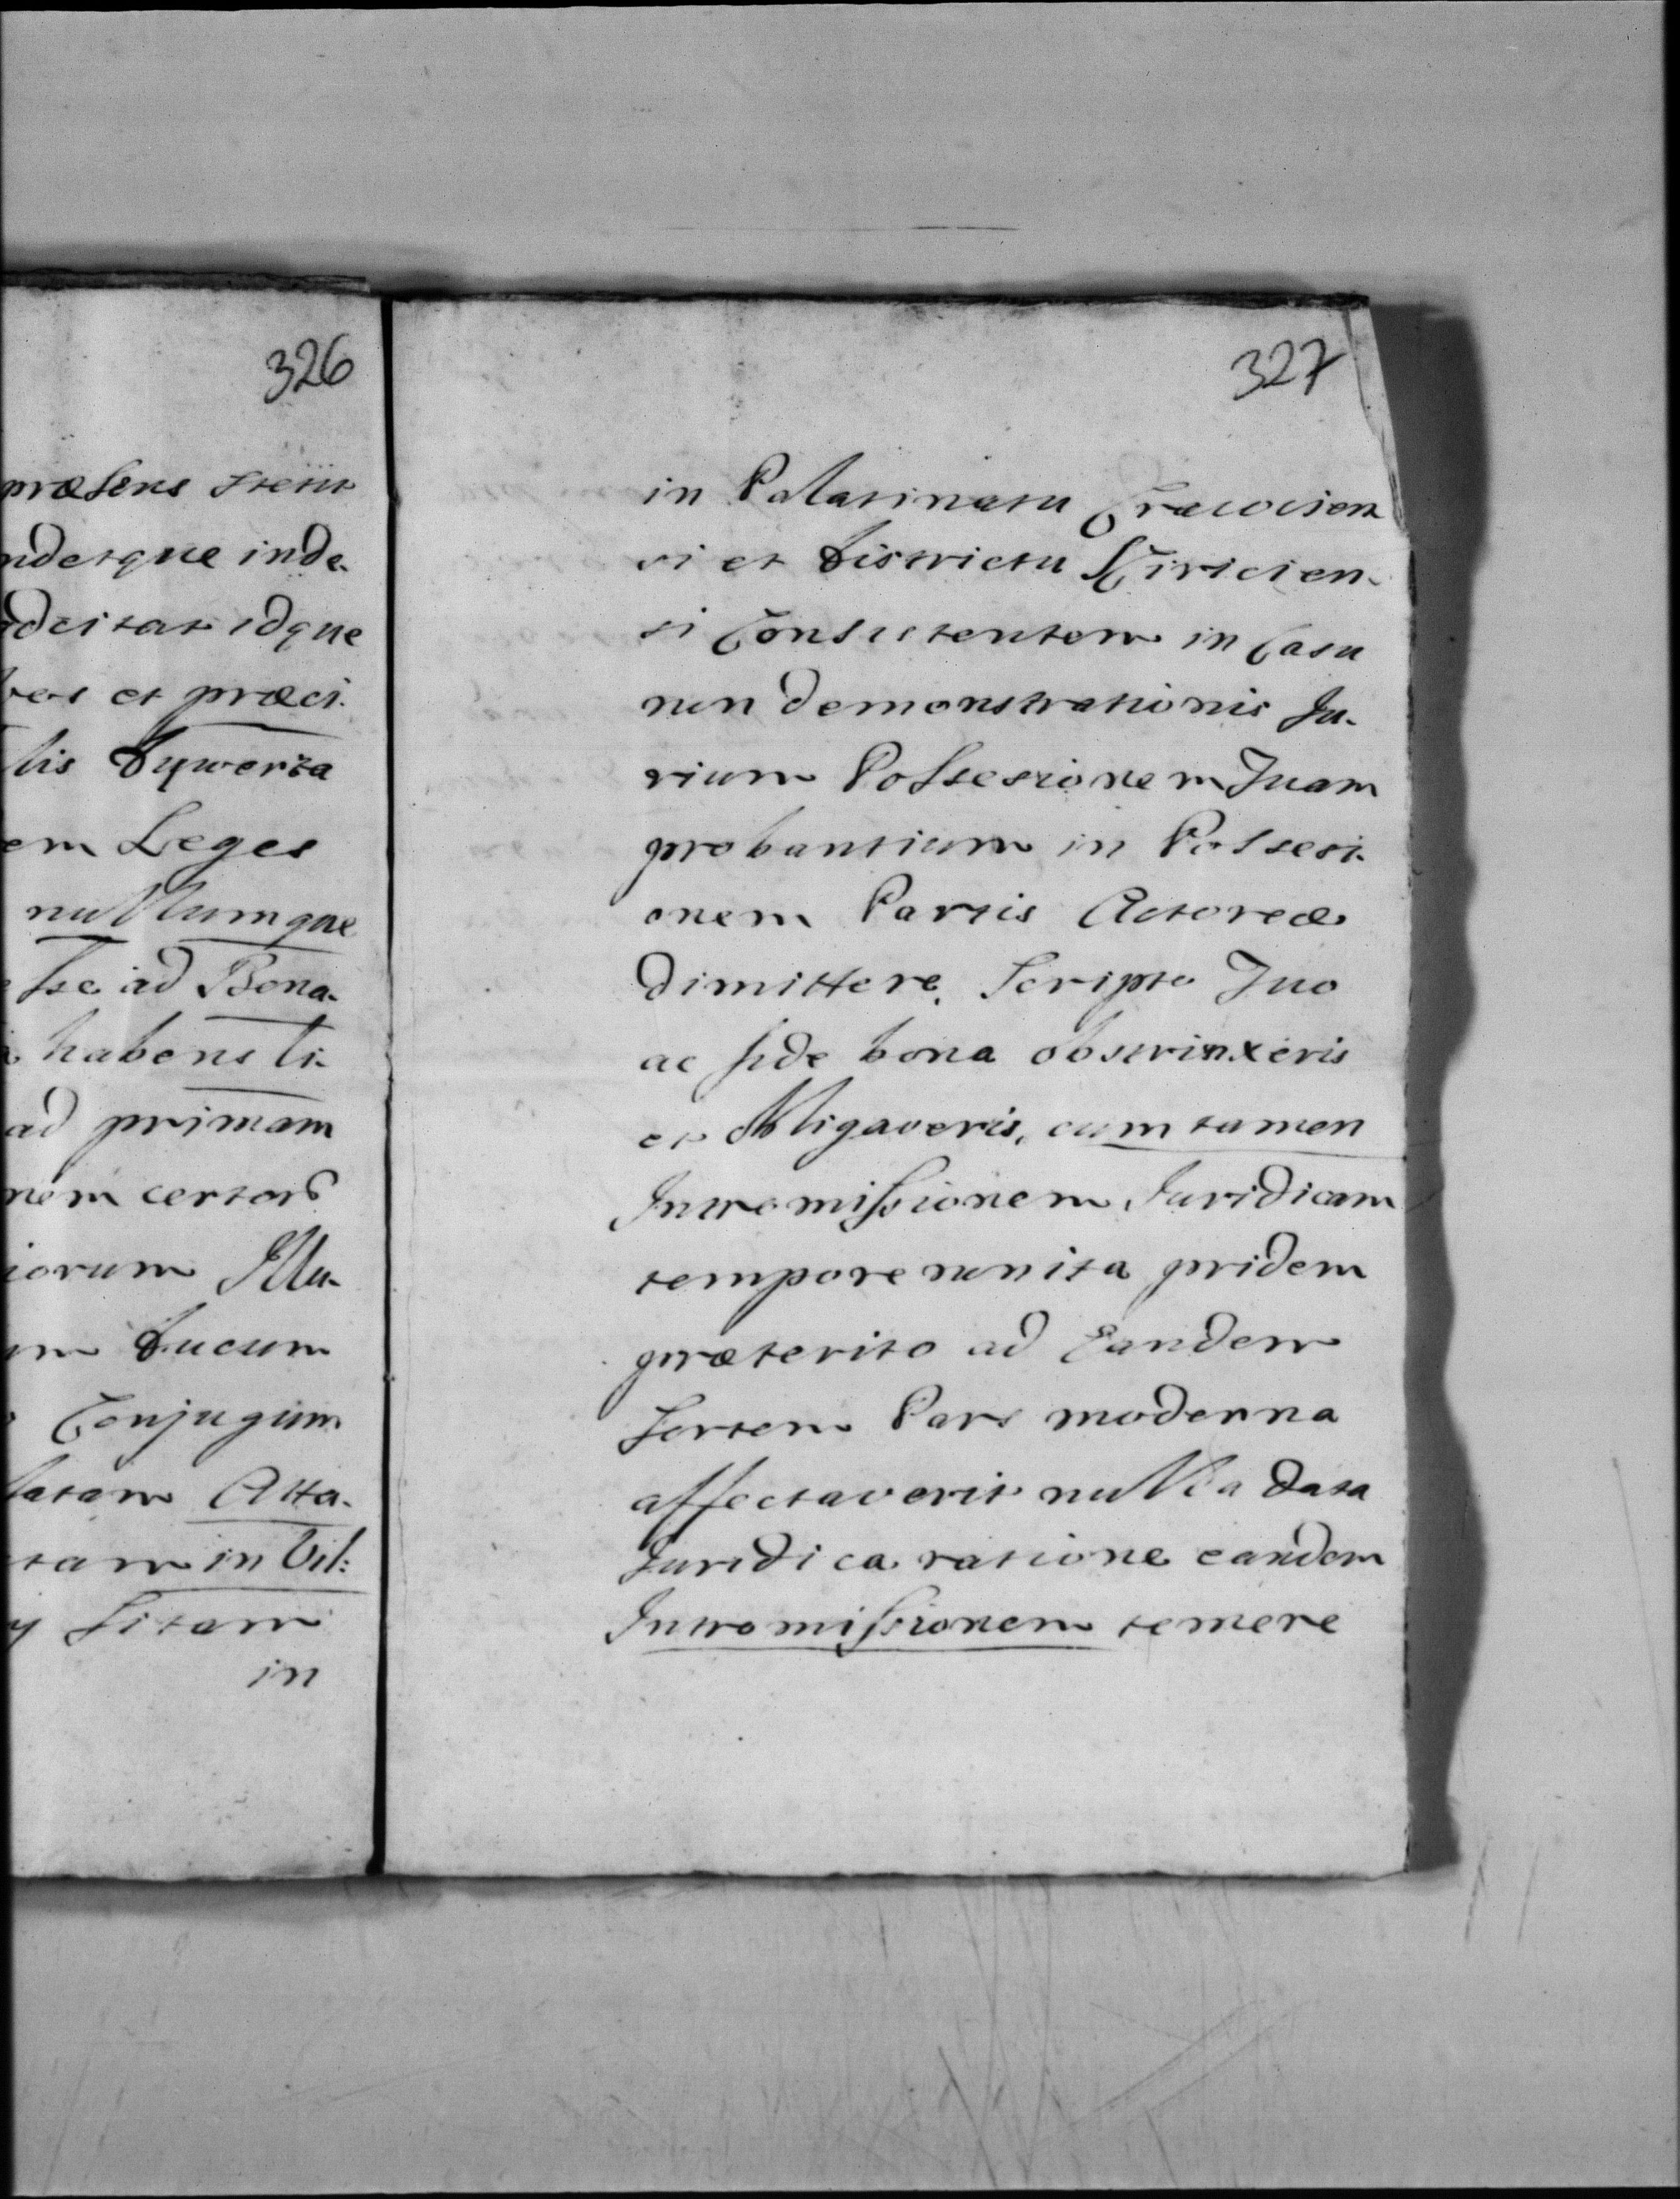 326
præsens stetit
ndetque inde-
dcitat idque
bes et præci-
lis Dywerza
em Leges
nullumque
sse ad Bona-
habens ti-
ad primam
nem certor
iorum Illu-
m Ducum
Conjugum
latam Atta-
tam in Vil:
y Sitam
in
327
in Palatinatu Cracovien
si et Districtu Sciricien-
si Consistentem in Casu
non demonstrationis Ju-
rium Possessionem Suam
probantium in Possesi-
onem Partis Actoreæ
dimittere, Scripto Suo
ac fide bona obstrinxeris
et Obligaveris, cum tamen
Intromissionem Juridicam
tempore non ita pridem
præterito ad Eandem
Sortem Pars moderna
affectaverit nulla data
Juridica ratione eandem
Intromissionem temere